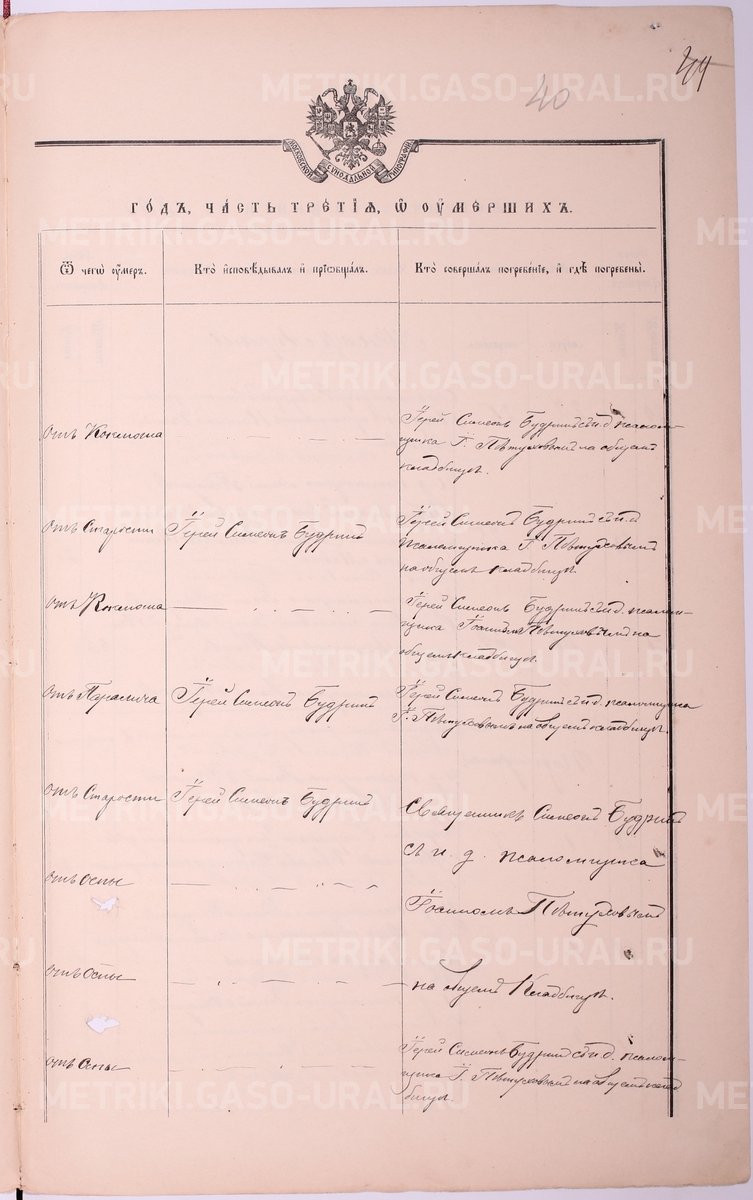 METRIKI.GASO-URAL.RU
40
МОСКОВСКОЙ СѴНОДАЛЬНОЙ ТИПОГРАФІИ
ГО́ДЪ, ЧА́СТЬ ТРЕ́ТІѦ, Ѡ ОУ҆МЕРШИХЪ.
Ѿ чегѡ̀ оу҆́меръ.
Кто̀ и҆сповѣ́дывалъ и҆ прїѡбща́лъ.
Кто̀ соверша́лъ погребе́нїе, и҆ гдѣ̀ погребены̀.
Отъ Коклюша
Іерей Симеонъ Будринъ съ и. д. псалом-
щика І. Пѣтуховымъ на общемъ
кладбищѣ.
Отъ Старости
Іерей Симеонъ Будринъ
Іерей Симеонъ Будринъ съ и. д.
псаломщика І. Пѣтуховымъ
на общемъ кладбищѣ.
Отъ Коклюша
Іерей Симеонъ Будринъ съ и. д. псалом-
щика Пѣтуховымъ на
общемъ кладбищѣ.
Отъ Паралича
Іерей Симеонъ Будринъ
Іерей Симеонъ Будринъ съ и. д. псаломщика
І. Пѣтуховымъ на общемъ кладбищѣ.
Отъ Старости
Іерей Симеонъ Будринъ
Священникъ Симеонъ Будринъ
съ и. д. псаломщика
Отъ Оспы
Пѣтуховымъ
Отъ Оспы
на общемъ Кладбищѣ.
Отъ Оспы
Іерей Симеонъ Будринъ съ и. д. псалом-
щика І. Пѣтуховымъ на общемъ клад-
бищѣ.